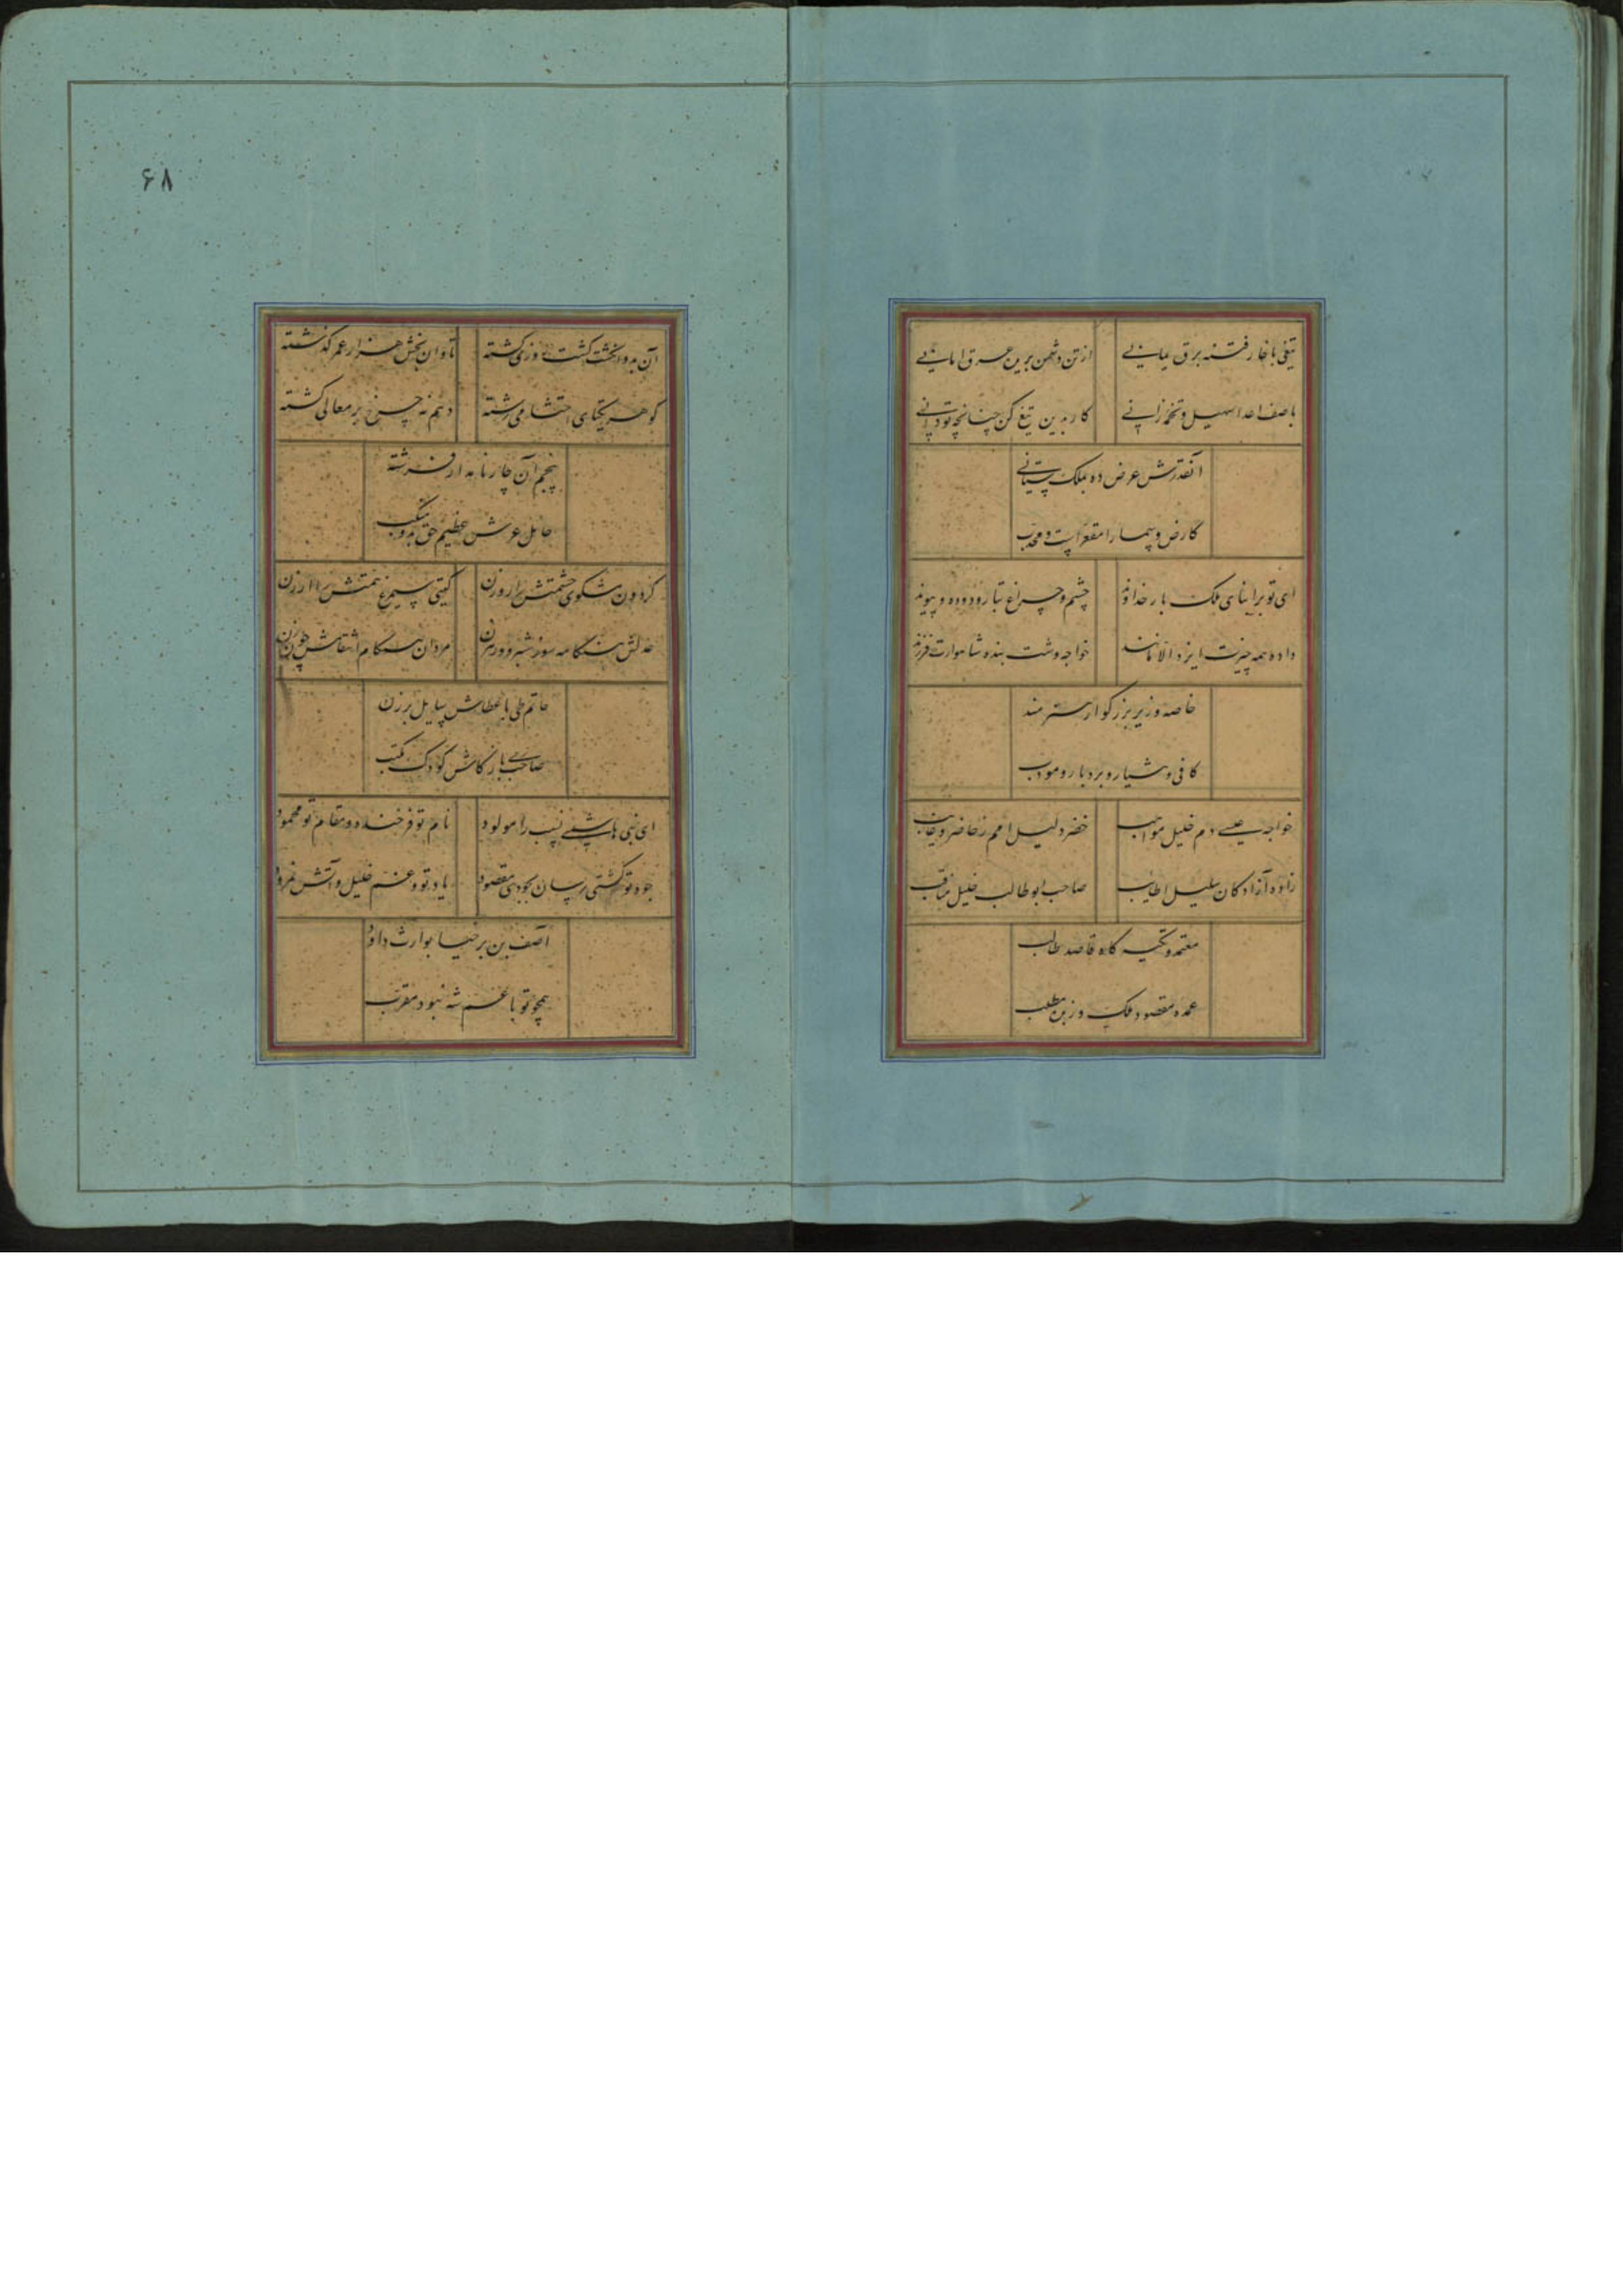 تیغی با خار فتنه برق یمانی
از تن دشمن برین عرق امانی
با صف اعدا سهیل و تخم زانی
کار بدین تیغ کن چنانچه تو دانی
آنقدرش عرض ده بملک ستانی
کارض و سما را مقعر است و محدب
ای تو بر ابنای ملک بار خداوند
چشم و چراغ تبار و دوده و پیوند
داده همه چیزت ایزد الا مانند
خواجه وشت بنده شاهوارت فرزند
خاصه وزیر بزرگوار هنرمند
کافی و هشیار و بردبار و مودب
خواجه عیسی دم خلیل مواهب
خضر دلیل امم ز حاضر و غایب
زاده آزادگان سلیل اطایب
صاحب ابوطالب خلیل مناقب
معتمد و تکیه گاه قاصد و طالب
عمده مقصود فلک وزبن مطلب
۶۸
آن بدو انگشت گشت روزی کشته
تاوان بخش هزار عمر گذشته
گوهر یکتای احتشامی رشته
دهم نه چرخ بر معالی گشته
پنجم آن چار نامدار فرشته
حامل عرش عظیم حق بدو منکب
گردون مشکوی حشمتش را روزن
گیتی سیمرغ همتش را ارزن
عدلش هنگامه سوز شبرو و رهزن
مردان هنگام انتقامش چون زن
حاتم طی با عطاش سایل برزن
صاحب ری با ذکاش کودک مکتب
ای نبی هاشمی نسب را مولود
نام تو فرخنده و مقام تو محمود
جود تو کشتی رسان بجودی مقصود
یاد تو و غم خلیل و آتش نمرود
آصف بن برخیا بوارث داود
همچو تو با عم شه نبود مقرب